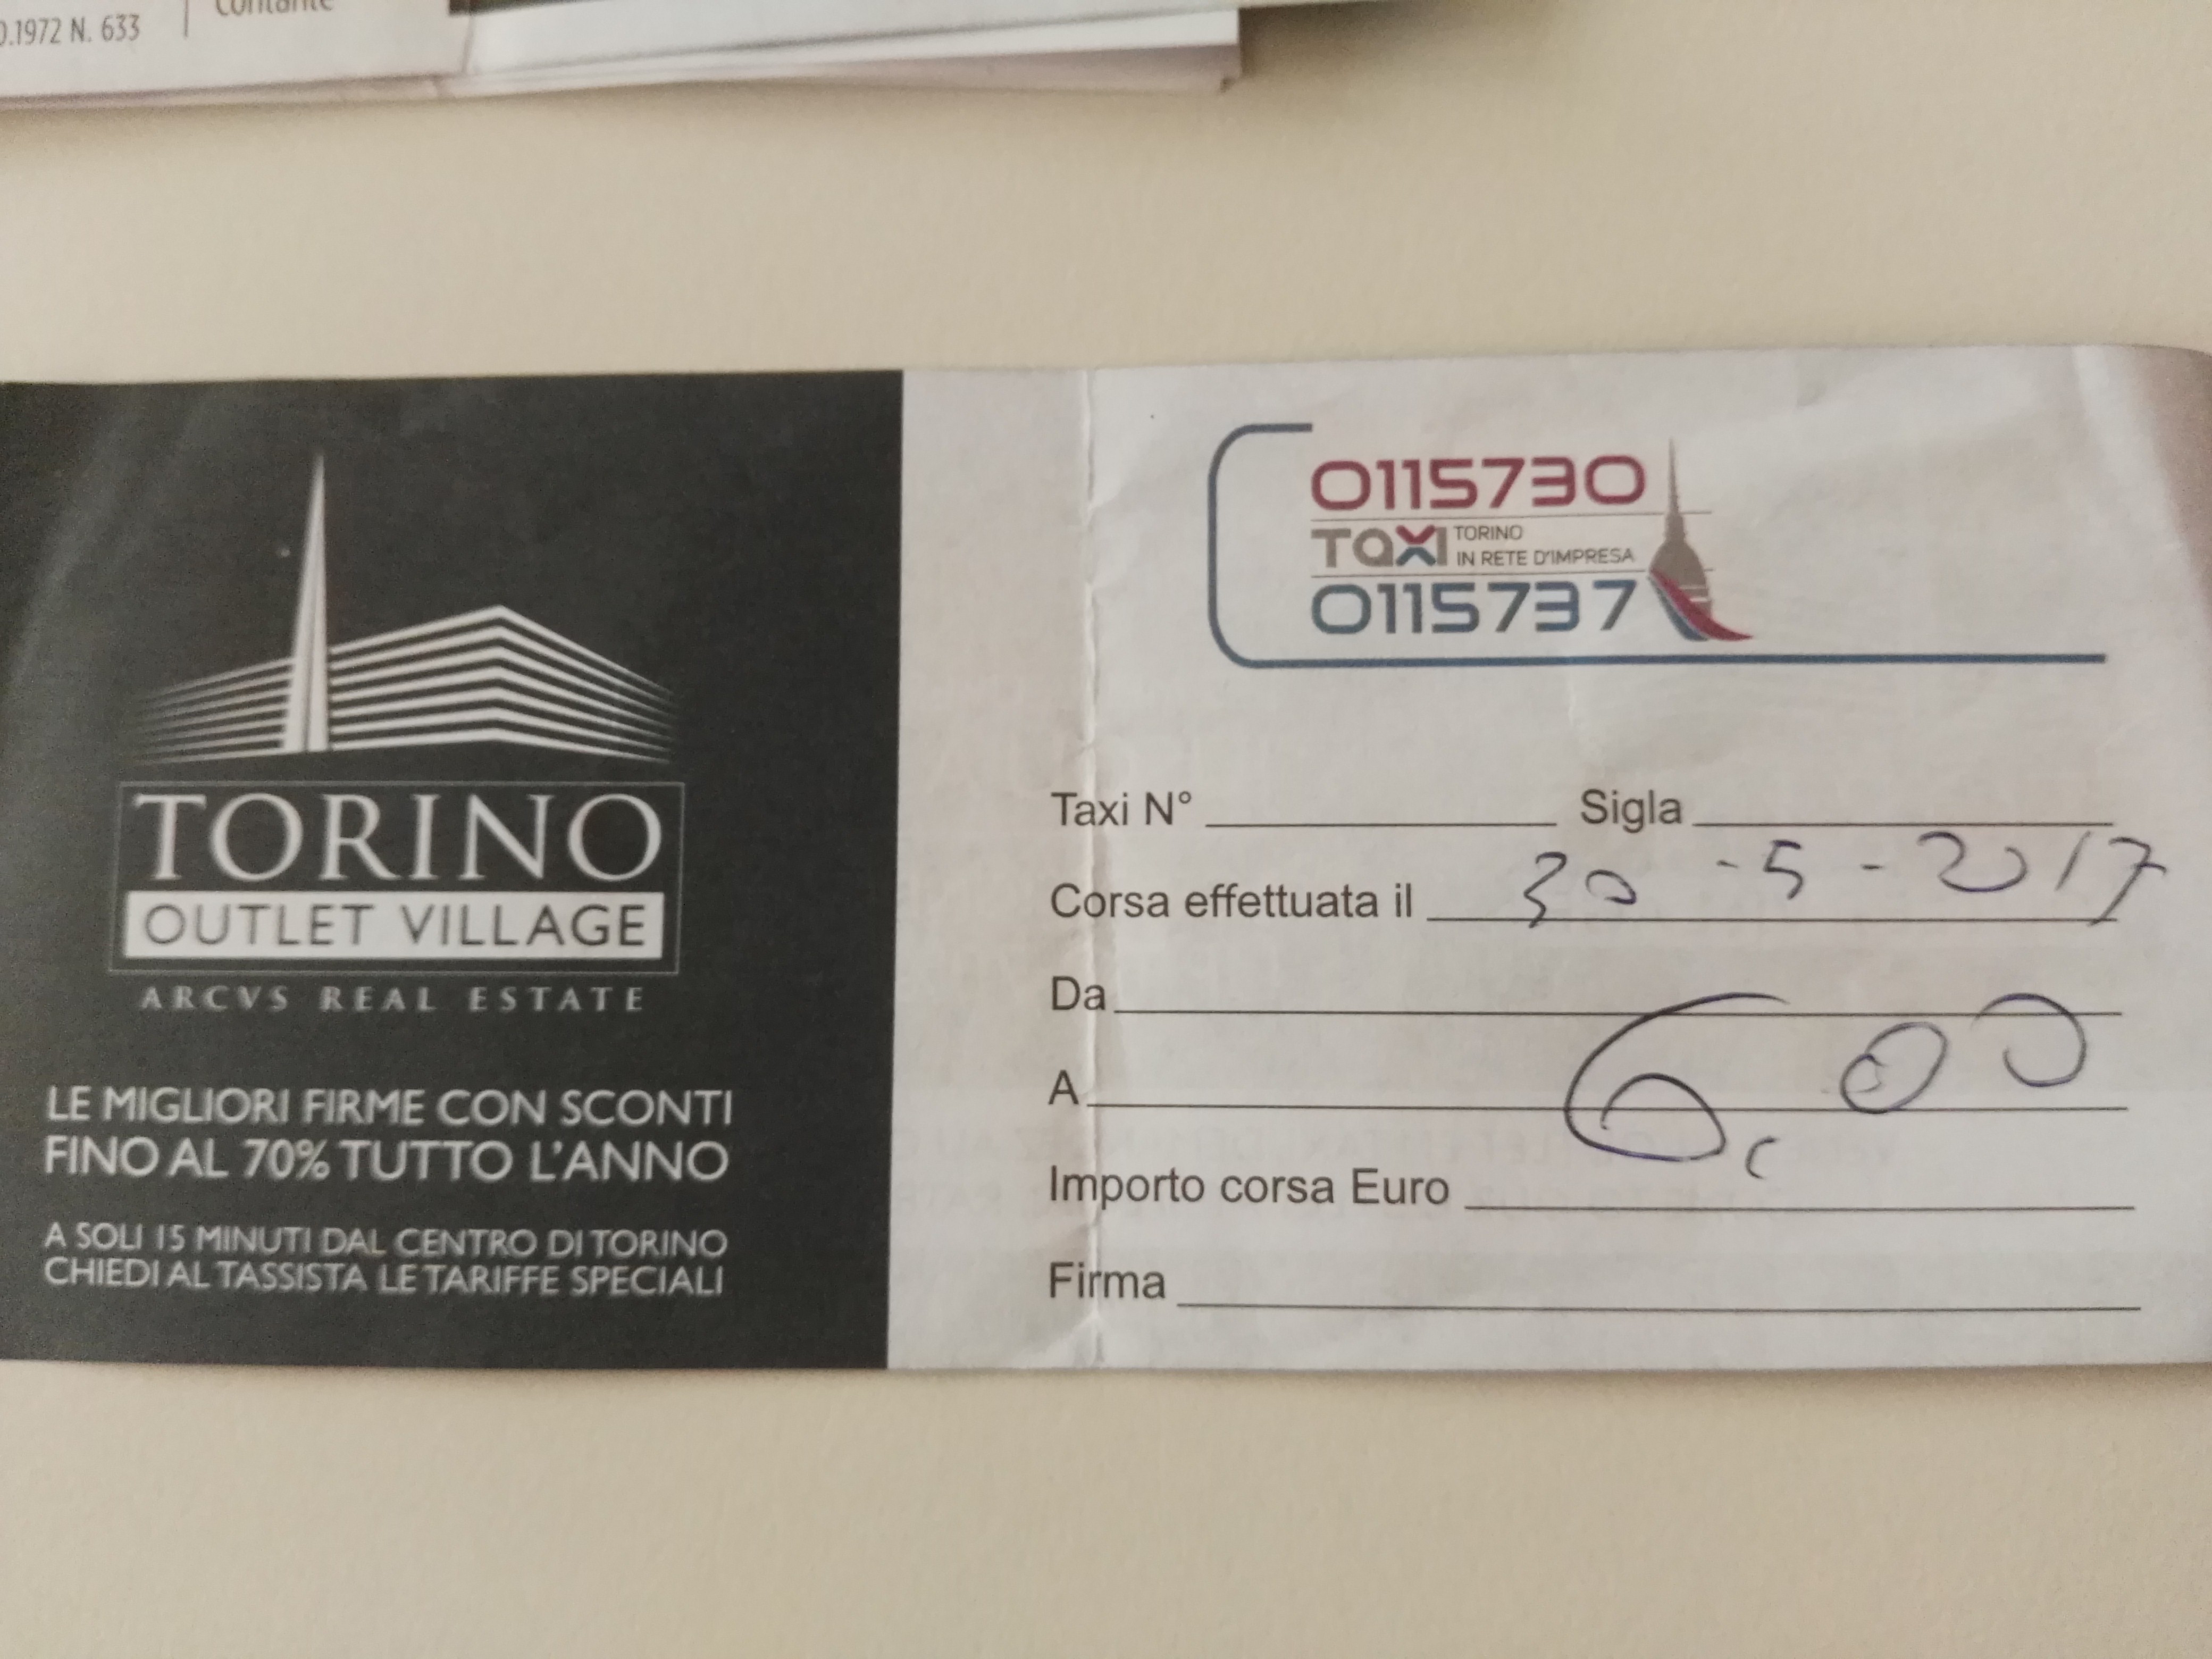 0.1972 N. 633
Contante
TORINO
OUTLET VILLAGE
ARCVS REAL ESTATE
LE MIGLIORI FIRME CON SCONTI
FINO AL 70% TUTTO L'ANNO
A SOLI 15 MINUTI DAL CENTRO DI TORINO
CHIEDI AL TASSISTA LE TARIFFE SPECIALI
0115730
TAXI TORINO
IN RETE D'IMPRESA
0115737
Taxi N° Sigla
Corsa effettuata il 30-5-2017
Da
A
6,00
Importo corsa Euro
Firma